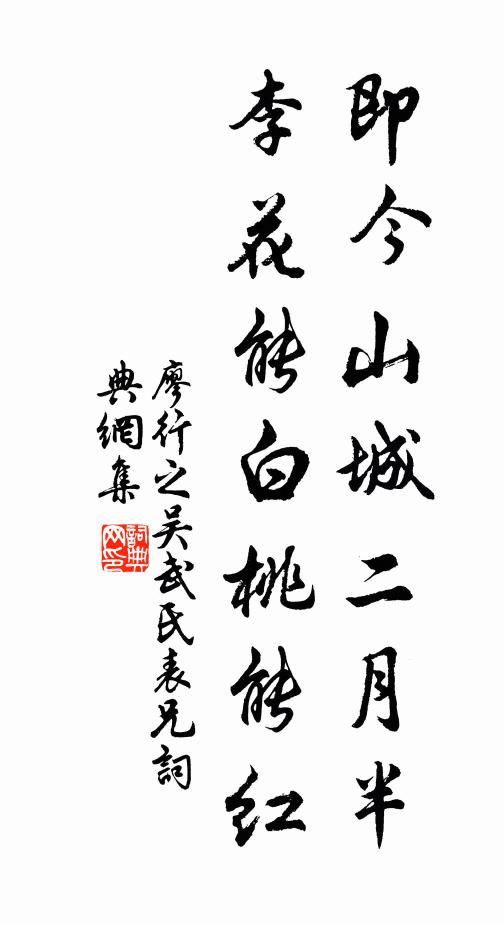 即今山城二月半
李花能白桃能红
廖行之吴武民表兄詞
典網集
詞典
网印